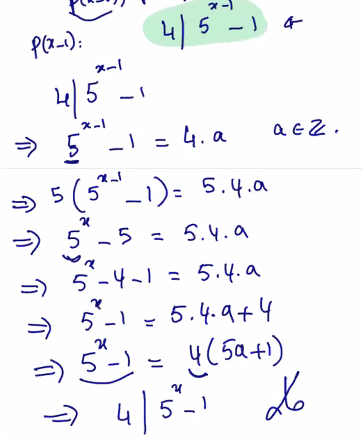 4 | 5^{x-1} - 1
P(x-1):
4 | 5^{x-1} - 1
⇒ 5^{x-1} - 1 = 4.a   a ∈ ℤ.
⇒ 5(5^{x-1} - 1) = 5.4.a
⇒ 5^x - 5 = 5.4.a
⇒ 5^x - 4 - 1 = 5.4.a
⇒ 5^x - 1 = 5.4.a + 4
⇒ 5^x - 1 = 4(5a + 1)
⇒ 4 | 5^x - 1